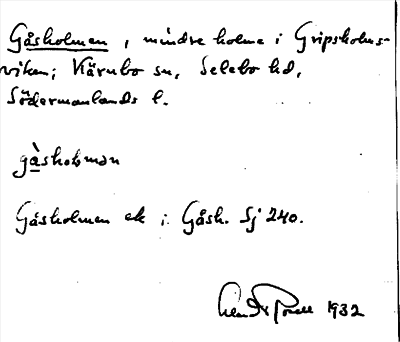 Gåsholmen, mindre holme i Gripsholms-
viken; Kärnbo sn, Selebo hd,
Södermanlands l.
gåsholmən
Gåsholmen ek i Gåsh. Sj 240.
1932